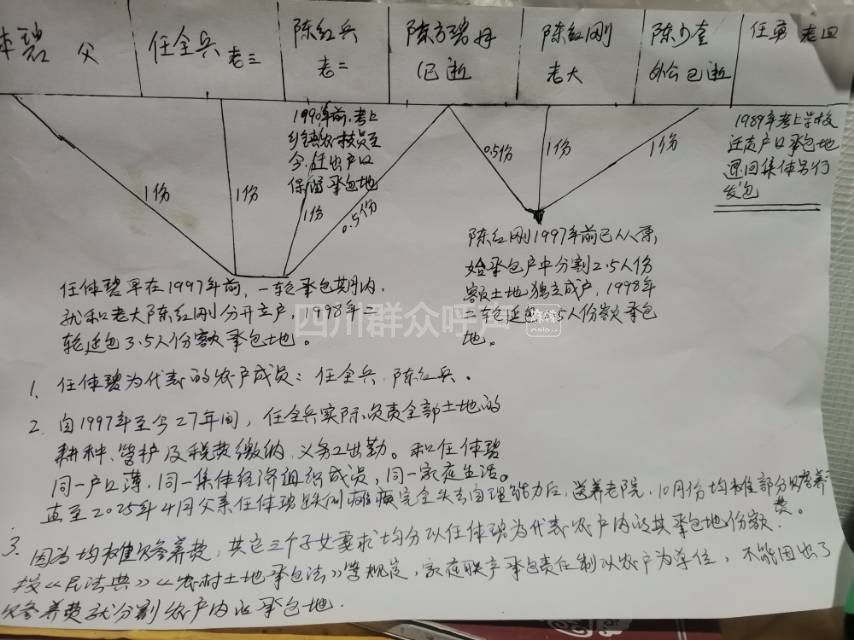 体碧 父
任全兵 老三
陈红兵
老二
陈方碧 母
已逝
陈红刚
老大
陈少奎
外公已逝
任勇 老四
1990年前,考上
今,迁出户口
保留承包地
1份
1份
1份
0.5份
0.5份
1份
1份
1989年考上学校
迁走户口承包地
退回集体另行
发包
任体碧早在1997年前,一轮承包期内,
就和老大陈红刚分开立户,1998年二
轮延包3.5人份额承包土地。
陈红刚1997年前已从原
承包户中分割2.5人份
额土地独立成户,1998年
二轮延包2.5人份额承包
地。
四川群众呼声
1. 任体碧为代表的农户成员:任全兵、陈红兵。
2. 自1997年至今27年间,任全兵实际负责全部土地的
耕种、管护及税费缴纳、义务工出勤。和任体碧
同一户口薄,同一集体经济组织成员,同一家庭生活。
直至2025年4月父亲任体碧瘫痪完全失去自理能力后,送养老院,10月份均摊部分赡养
费。
3. 因为均摊赡养费,其它三个子女要求均分以任体碧为代表农户内的共承包地份额,
按《民法典》《农村土地承包法》等规定,家庭联产承包责任制以农户为单位,不能因出了
赡养费就分割农户内的承包地.